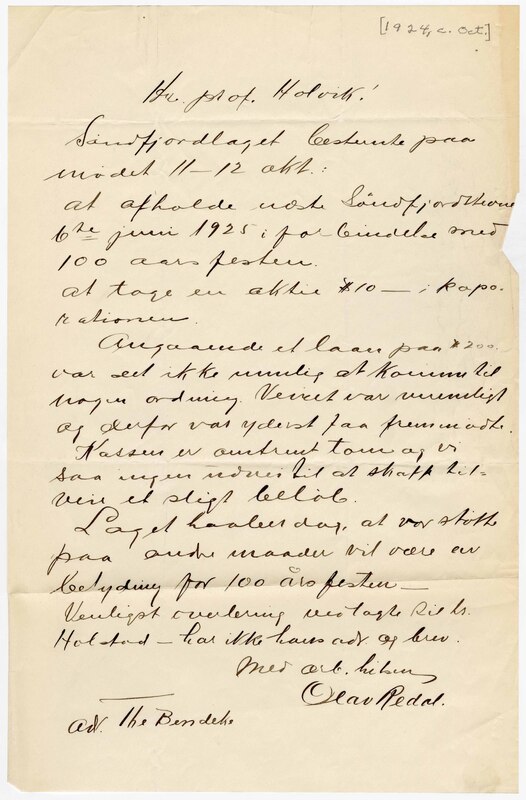 [1924, c. Oct.]
Hr. prof. Holvik!
Søndfjordlaget bestemte paa
mødet 11–12 okt.:
at afholde næste Søndfjordstevne
6te juni 1925 i forbindelse med
100 aarsfesten.
at tage en aktie $10 — i kopo-
rationen.
Angaaende et laan paa $200.
var det ikke mulig at komme til
nogen ordning. Veiret var uvenligt
og derfor var yderst faa fremmødte.
Kassen er omtrent tom og vi
saa ingen udvei til at skaffe til-
veie et sligt beløb.
Laget haaber dog, at vor støtte
paa andre maader vil være av
betydning for 100 årsfesten —
Venligst overlevering vedlagte til hr.
Holstad — har ikke hans adr. og brev.
Med ærb. hilsen
Olav Redal.
adr. The Bendeke